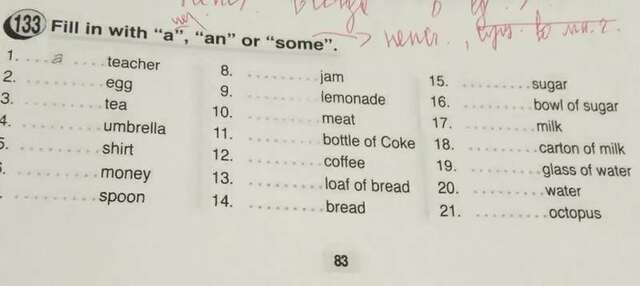 133 Fill in with "a", "an" or "some".
1. ....a.... teacher
2. ......... egg
3. ......... tea
4. ......... umbrella
5. ......... shirt
. ......... money
. ......... spoon
8. ......... jam
9. ......... lemonade
10. ......... meat
11. ......... bottle of Coke
12. ......... coffee
13. ......... loaf of bread
14. ......... bread
15. ......... sugar
16. ......... bowl of sugar
17. ......... milk
18. ......... carton of milk
19. ......... glass of water
20. ......... water
21. ......... octopus
83